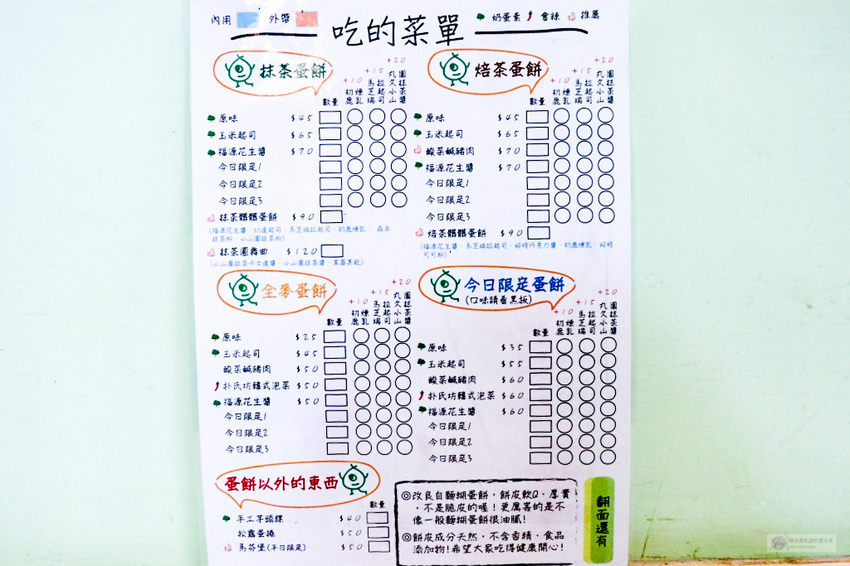 內用 外帶 吃的菜單 奶蛋素 會辣 推薦
抹茶蛋餅
+10 +15 +20
數量 初鹿煉乳 馬芝瑞拉起司 丸久小山園抹茶醬
原味 $45
玉米起司 $65
福源花生醬 $70
今日限定1
今日限定2
今日限定3
抹茶髒髒蛋餅 $90
抹茶圓舞曲 $120
焙茶蛋餅
+10 +15 +20
數量 初鹿煉乳 馬芝瑞拉起司 丸久小山園抹茶醬
原味 $45
玉米起司 $65
酸菜鹹豬肉 $70
福源花生醬 $70
今日限定1
今日限定2
今日限定3
焙茶髒髒蛋餅 $90
全麥蛋餅
+10 +15 +20
數量 初鹿煉乳 馬芝瑞拉起司 丸久小山園抹茶醬
原味 $25
玉米起司 $45
酸菜鹹豬肉 $50
朴氏坊韓式泡菜 $50
福源花生醬 $50
今日限定1
今日限定2
今日限定3
今日限定蛋餅
(口味請看黑板)
+10 +15 +20
數量 初鹿煉乳 馬芝瑞拉起司 丸久小山園抹茶醬
原味 $35
玉米起司 $55
酸菜鹹豬肉 $60
朴氏坊韓式泡菜 $60
福源花生醬 $60
今日限定1
今日限定2
今日限定3
蛋餅以外的東西
數量
手工芋頭粿 $40
松露蛋燒 $50
馬芬堡(平日限定) $50
◎改良自麵糊蛋餅,餅皮軟Q、厚實
,不是脆皮的喔!更厲害的是不
像一般麵糊蛋餅很油膩!
◎餅皮成分天然,不含香精、食品
添加物!希望大家吃得健康開心!
翻面還有